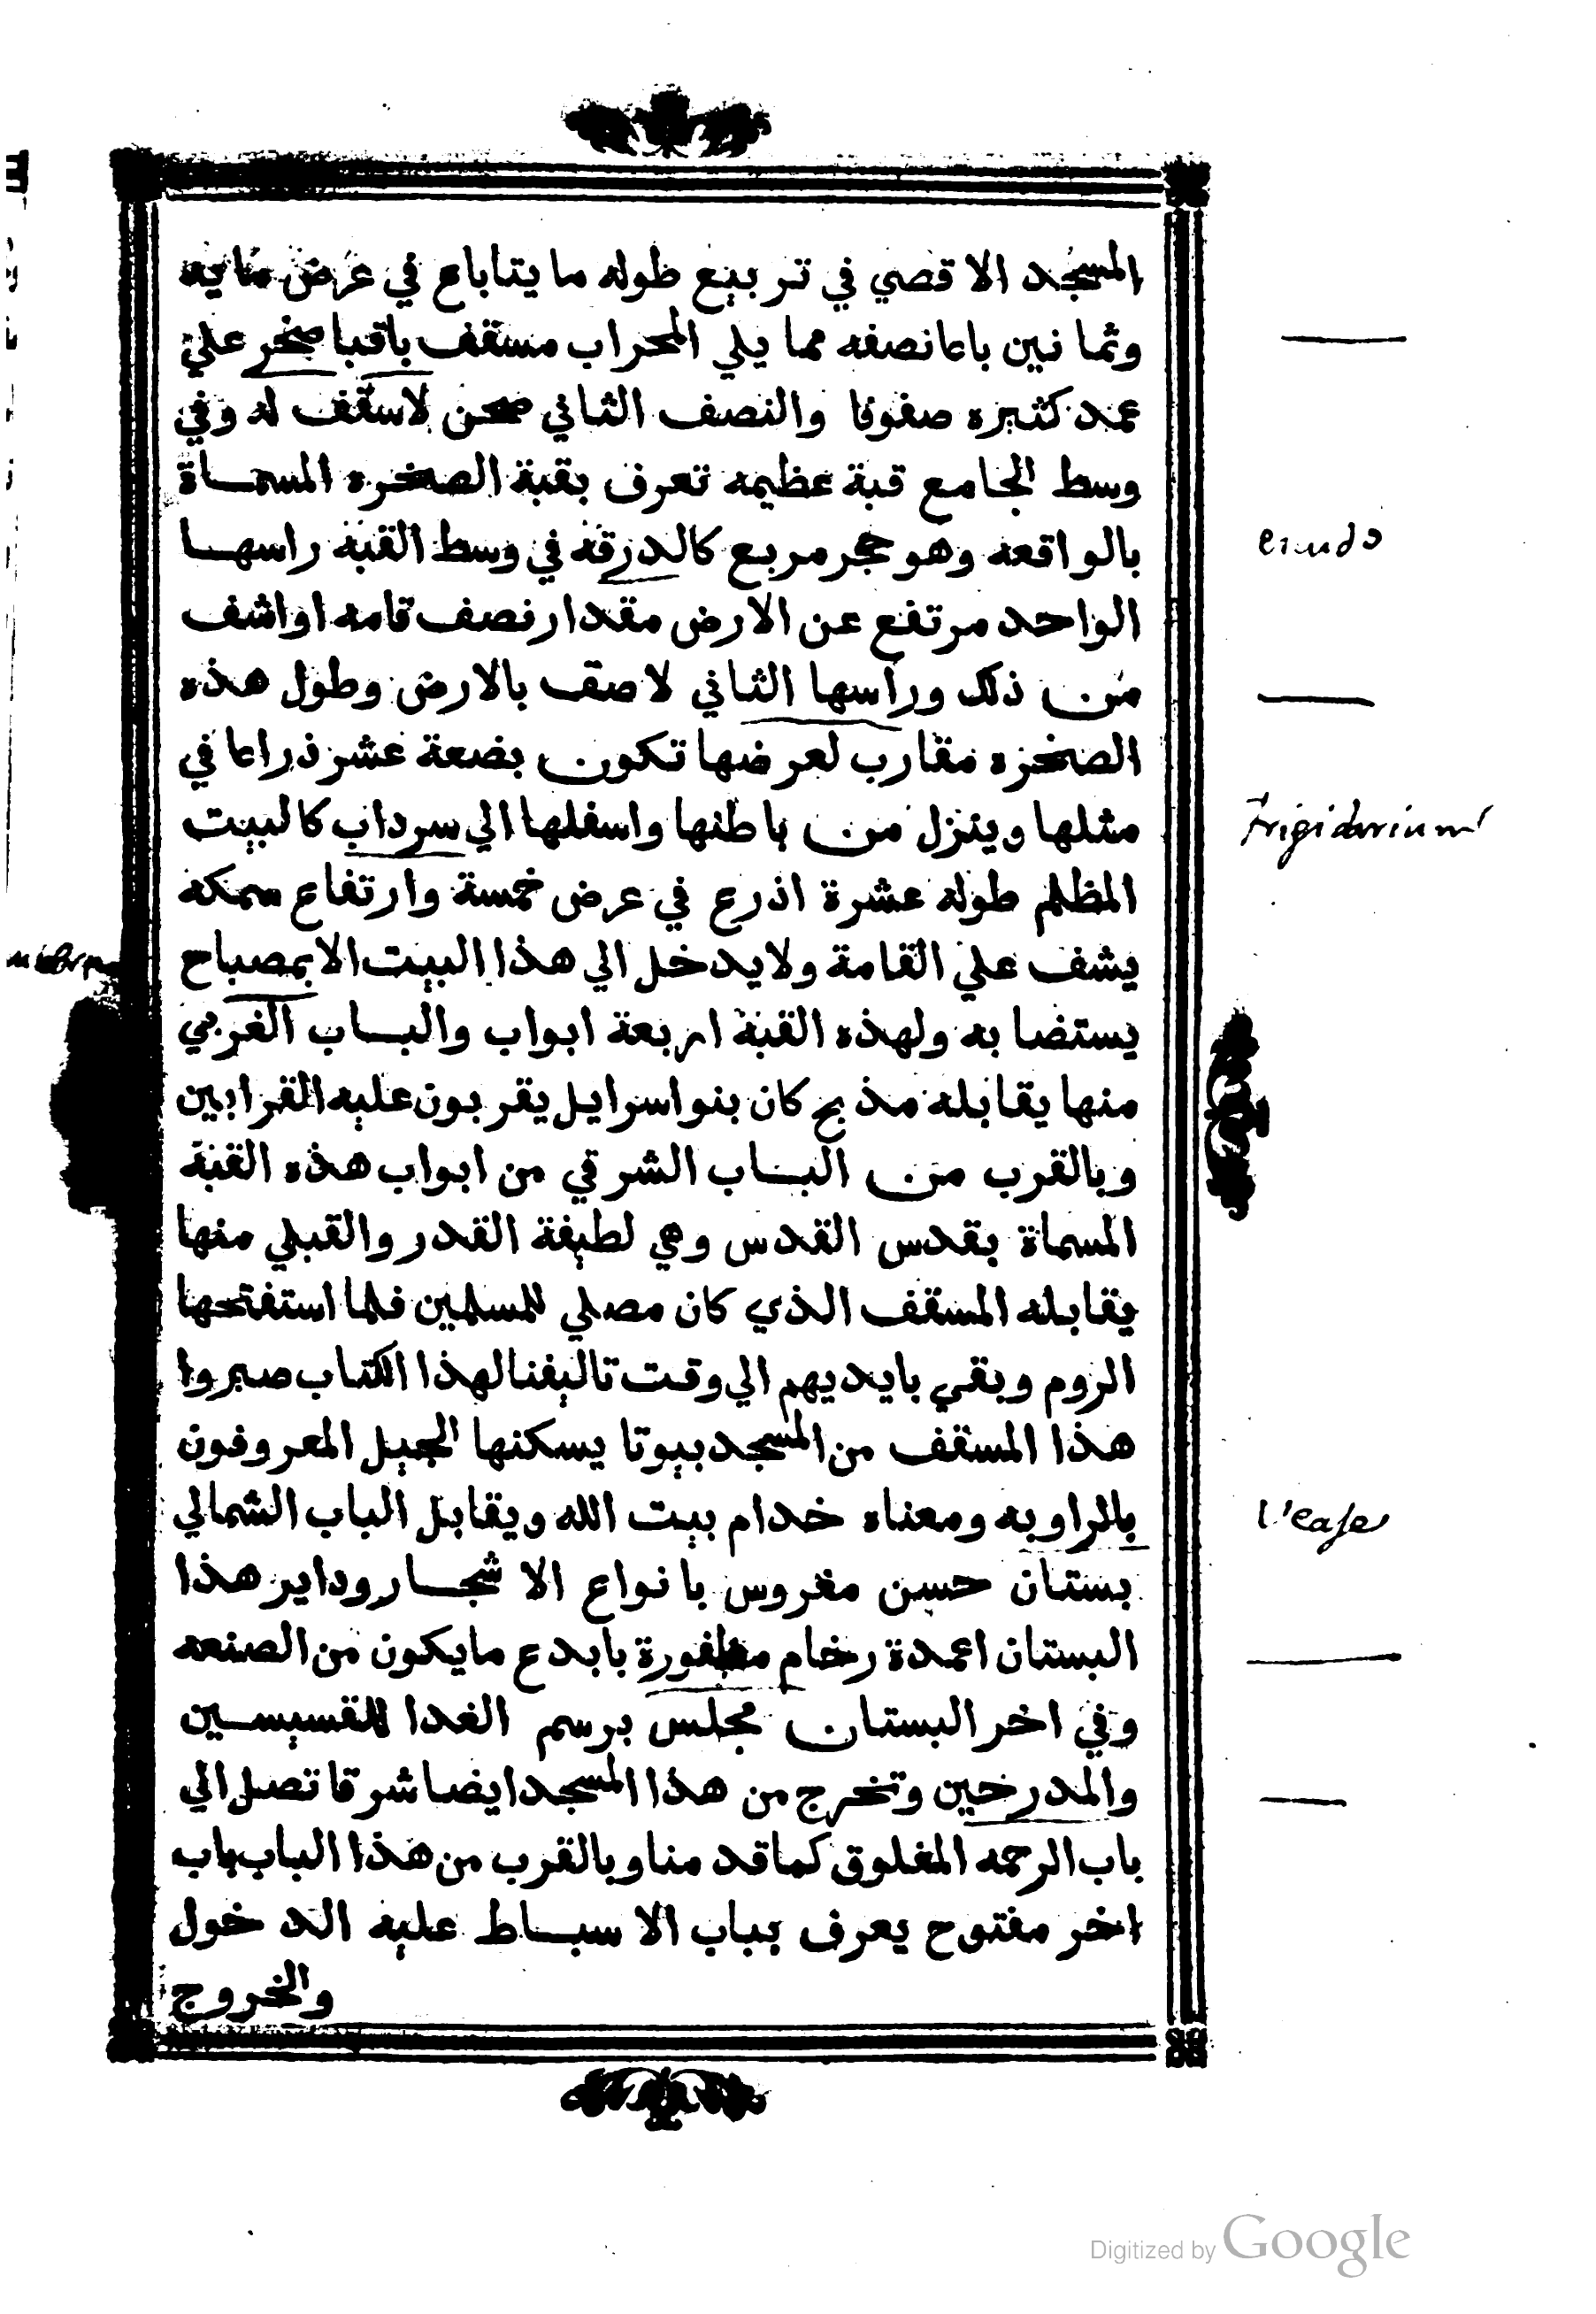 المسجد الا قصي في تر بيع طوله ما يتاباع في عرض مايه
وثما نين باعا نصفه مما يلي المحراب مسقف باقبا صخر علي
عمد كثيره صفوفا والنصف الثاني صحن لاسقف له وفي
وسط الجامع قبة عظيمه تعرف بقبة الصخره المسماة
بالواقعه وهو حجر مربع كالدرقه في وسط القبة راسها
الواحد مرتفع عن الارض مقدار نصف قامه اواشف
من ذلك وراسها الثاني لاصق بالارض وطول هذه
الصخره مقارب لعرضها تكون بضعة عشر ذراعا في
مثلها وينزل من باطنها واسفلها الي سرداب كالبيت
المظلم طوله عشرة اذرع في عرض خمسة وارتفاع سمكه
يشف علي القامة ولايدخل الي هذا البيت الا بمصباح
يستضا به ولهذه القبة اربعة ابواب والباب الغربي
منها يقابله مذبح كان بنواسرايل يقربون عليه القرابين
وبالقرب من الباب الشرقي من ابواب هذه القبة
المسماة بقدس القدس وهي لطيفة القدر والقبلي منها
يقابله المسقف الذي كان مصلي للمسلمين فلما استفتحها
الروم وبقي بايديهم الي وقت تاليفنا لهذا الكتاب صيروا
هذا المسقف من المسجد بيوتا يسكنها الجيل المعروفون
بالداويه ومعناه خدام بيت الله ويقابل الباب الشمالي
بستان حسن مغروس بانواع الا شجار وداير هذا
البستان اعمدة رخام مظفورة بابدع مايكون من الصنعه
وفي اخر البستان مجلس برسم الغدا للقسيسين
والمدرخين وتخرج من هذا المسجد ايضا شرقا تصل الي
باب الرحمه المغلوق كماقد مناوبالقرب من هذا الباب باب
اخر مفتوح يعرف بباب الا سباط عليه الد خول
والخروج
Frigidarium
Digitized by Google